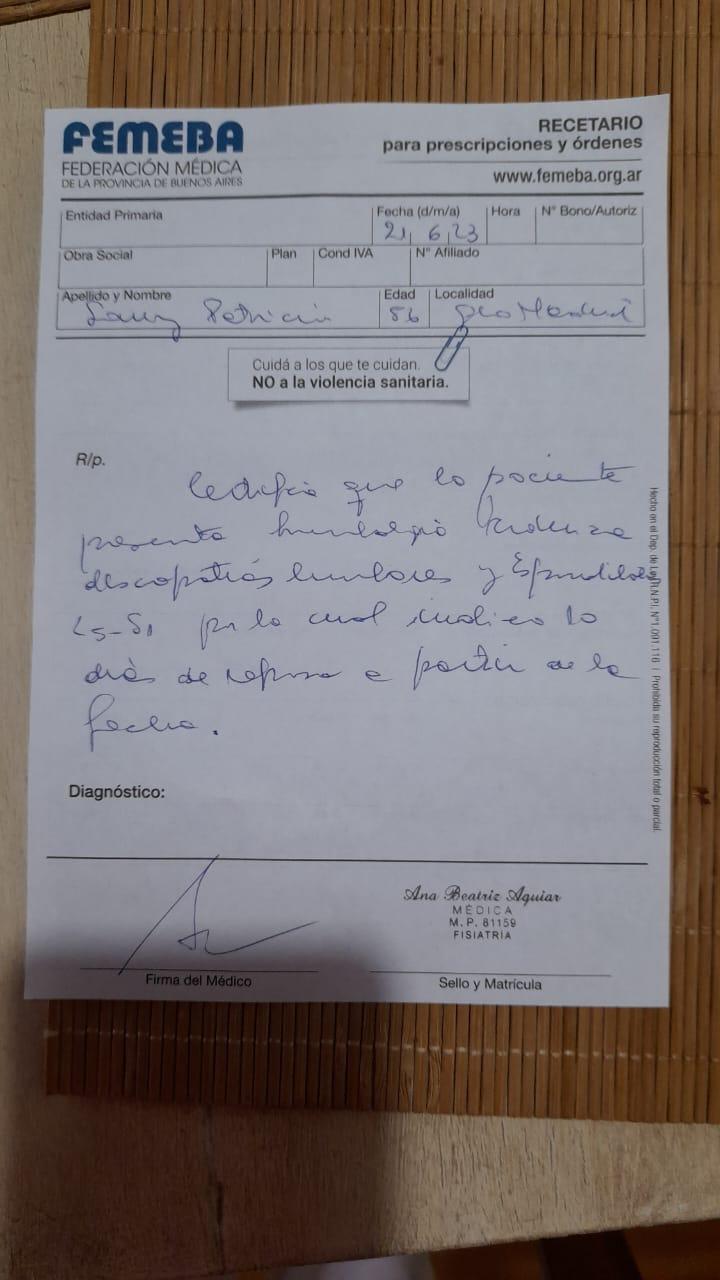 FEMEBA
FEDERACIÓN MÉDICA
DE LA PROVINCIA DE BUENOS AIRES
RECETARIO
para prescripciones y órdenes
www.femeba.org.ar
Entidad Primaria
Fecha (d/m/a)
21, 6, 23
Hora
N° Bono/Autoriz
Obra Social
Plan
Cond IVA
N° Afiliado
Apellido y Nombre
Patricia
Edad
56
Localidad
Cuidá a los que te cuidan.
NO a la violencia sanitaria.
R/p.
Certifico que la paciente
presenta lumbalgia
discopatias lumbares y
L5-S1 por lo cual indico 10
dias de reposo a partir de la
fecha.
Diagnóstico:
Firma del Médico
Ana Beatriz Aguiar
MÉDICA
M.P. 81159
FISIATRIA
Sello y Matrícula
Hecho en el Dep. de Ley R.N.P.I. N°1.091.116 | Prohibida su reproducción total o parcial.